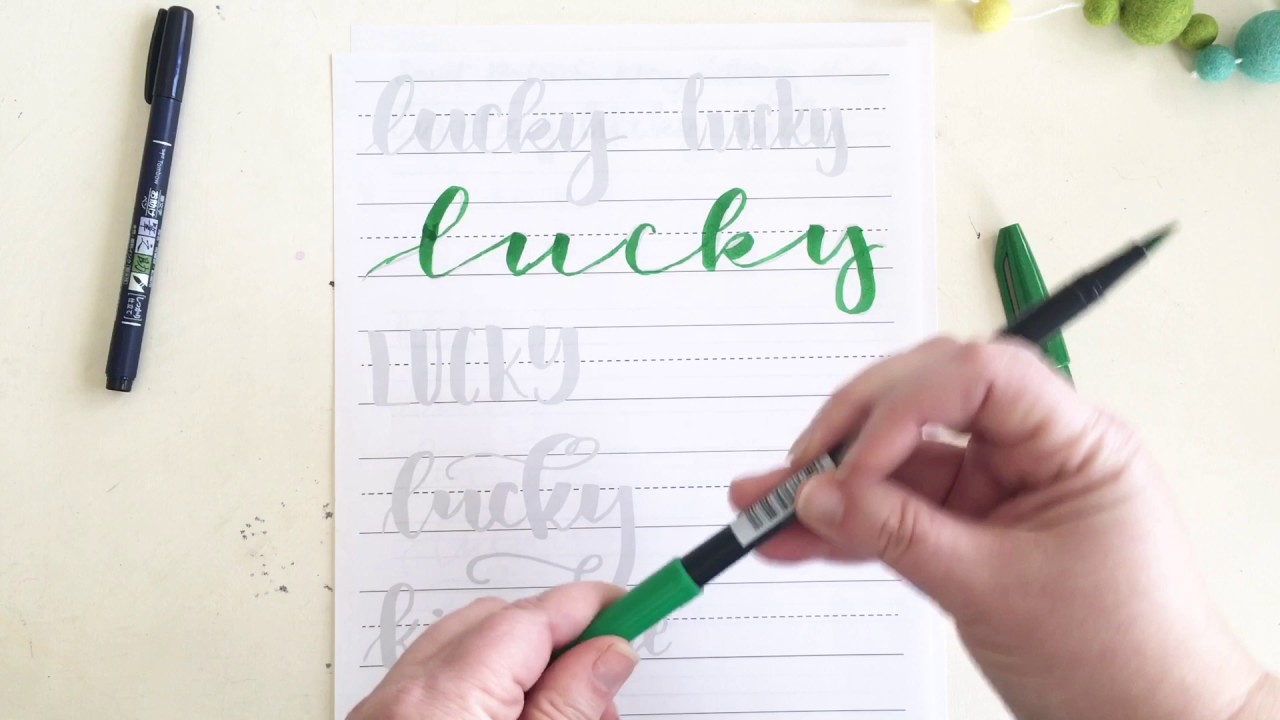 lucky lucky
lucky
LUCKY
lucky
TOMBOW